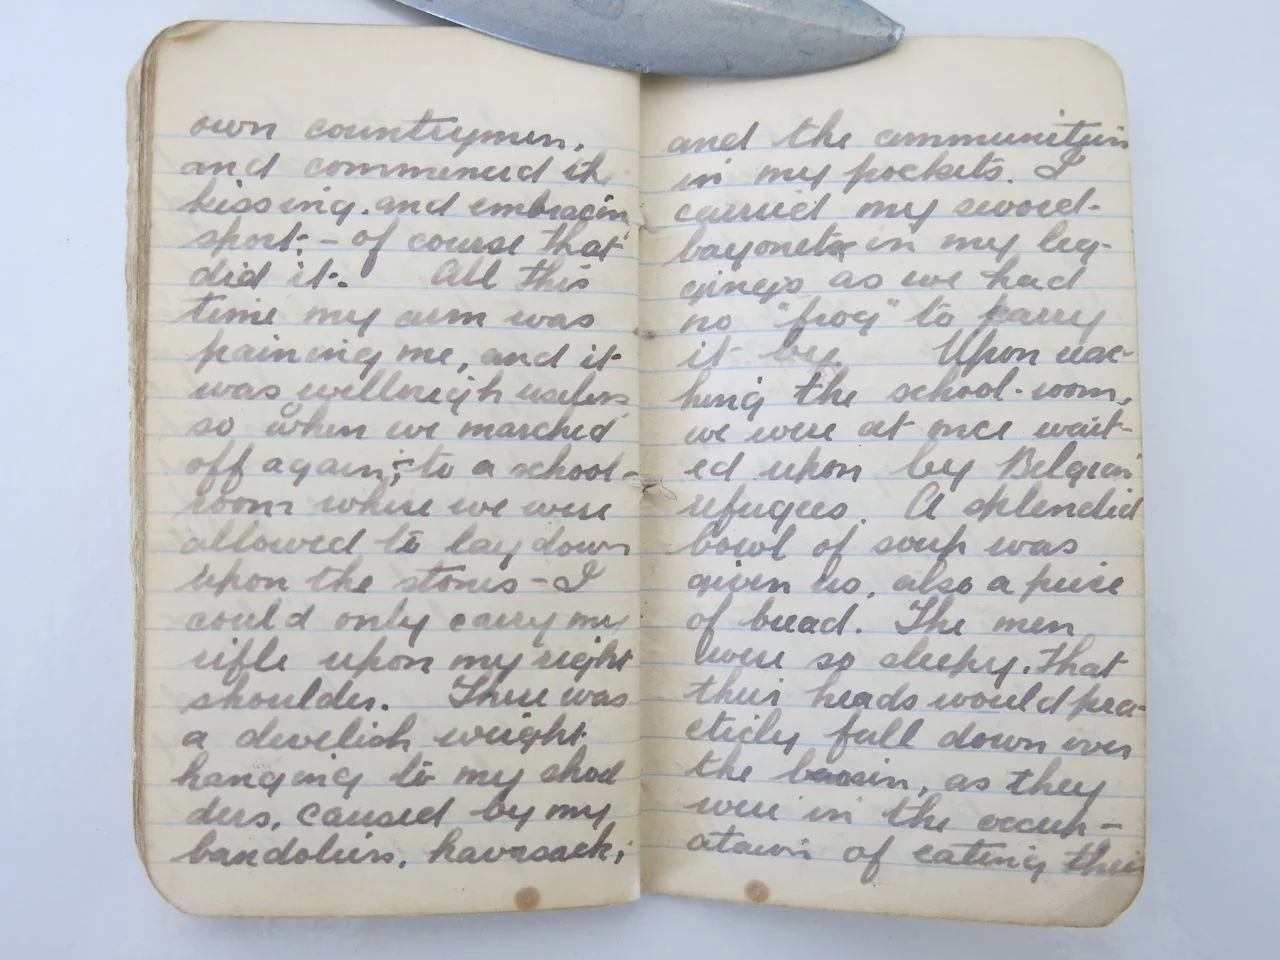 own countrymen,
and commenced the
kissing. and embracing
sport; - of course that
did it. All this
time my arm was
paining me, and it
was wellnigh useless
so when we marched
off again; to a school-
room where we were
allowed to lay down
upon the stones - I
could only carry my
rifle upon my right
shoulder. There was
a develish weight
hanging to my shoul
ders, caused by my
bandoliers, haversack,
and the ammunition
in my pockets. I
carried my sword-
bayonet in my leg-
gings as we had
no "frog" to carry
it by. Upon reac-
hing the school-room,
we were at once wait-
ed upon by Belgian
refugees. A splendid
bowl of soup was
given us, also a peice
of bread. The men
were so sleepy. That
their heads would prac-
ticly fall down over
the basin, as they
were in the
of eating their